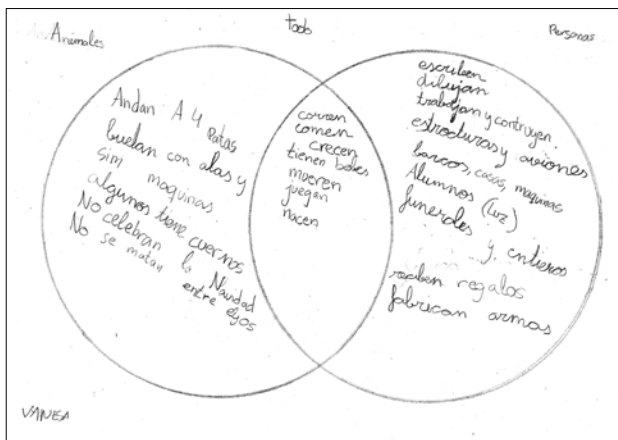 Animales
todo
Personas
Andan A 4 patas
buelan con alas y
sim maquinas.
algunos tiene cuernos
No celebran la Navidad
No se matan entre ellos
corren
comen
crecen
tienen bebes
mueren
juegan
nacen
escriben
dibujan
trabajan y contruyen.
estroduras y aviones
barcos, casas, maquinas
Alumnos (luz)
funerales y entieros
reciben regalos
fabrican armas
VANESA